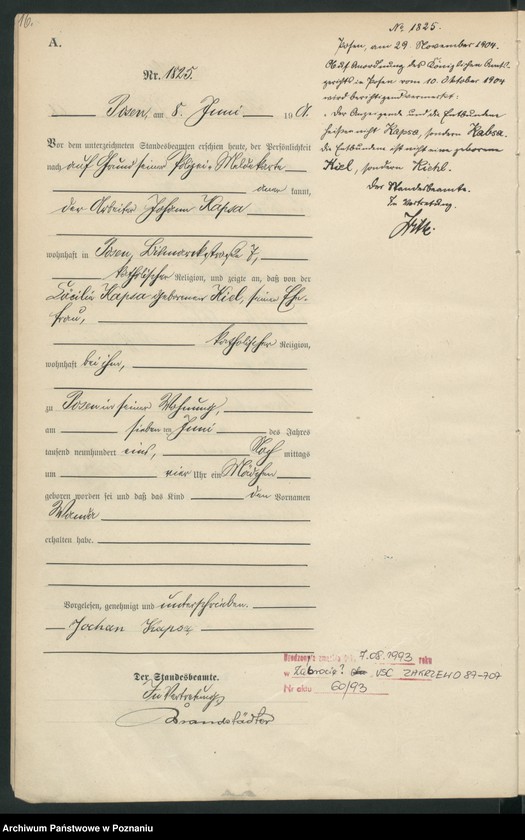 16.
A.
Nr. 1825.
Posen, am 8. Juni 190
Vor dem unterzeichneten Standesbeamten erschien heute, der Persönlichkeit
nach auf Grund seiner Polizei-Meldekarte
kannt,
der Arbeiter Johann Kapsa
wohnhaft in Posen, Bismarckstraße 7,
katholischer Religion, und zeigte an, daß von der
Cäcilie Kapsa geborenen Kiel, seiner Ehe-
frau,
katholischer Religion,
wohnhaft bei ihm,
zu Posen in seiner Wohnung,
am sieben ten Juni des Jahres
tausend neunhundert eins, Nach mittags
um vier Uhr ein Mädchen
geboren worden sei und daß das Kind den Vornamen
Wanda
erhalten habe.
Vorgelesen, genehmigt und unterschrieben.
Johan Kapsz
Der Standesbeamte.
In Vertretung
Brandstädter
No 1825.
Posen, am 29. November 1904.
Auf Anordnung des Königlichen Amts-
gerichts in Posen vom 10. Oktober 1904
wird berichtigend vermerkt:
Der Anzeigende und die Entbundene
heissen nicht Kapsa, sondern Kabsa.
Die Entbundene ist nicht eine geborene
Kiel, sondern Kichl.
Der Standesbeamte.
In Vertretung.
7.08.1993 roku
w USC ZAKRZEWO 89-707
Nr aktu 60/93
Archiwum Państwowe w Poznaniu